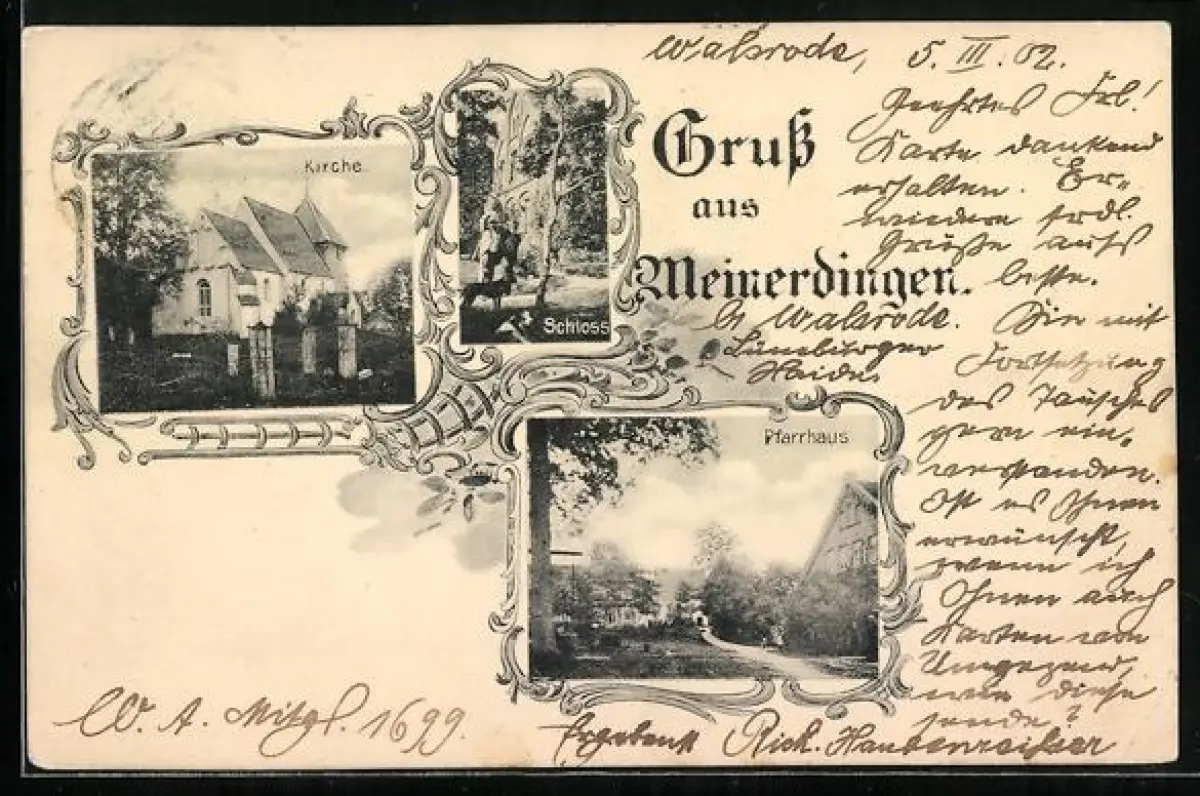 Walsrode, 5. III. 02.
Geehrtes Frl.!
Karte dankend
erhalten. Er-
wiedere frdl.
Grüße aufs
beste.
Bin mit
Fortsetzung
des Tausches
gern ein-
verstanden.
Ist es Ihnen
erwünscht,
wenn ich
Ihnen auch
Karten von
Umgegend,
wie diese
sende?
Ergebenst Rich.
Kirche
Schloss
Gruß
aus
Meinerdingen.
b/ Walsrode.
Lüneburger
Haide
Pfarrhaus
W. A. Mitgl. 1699.